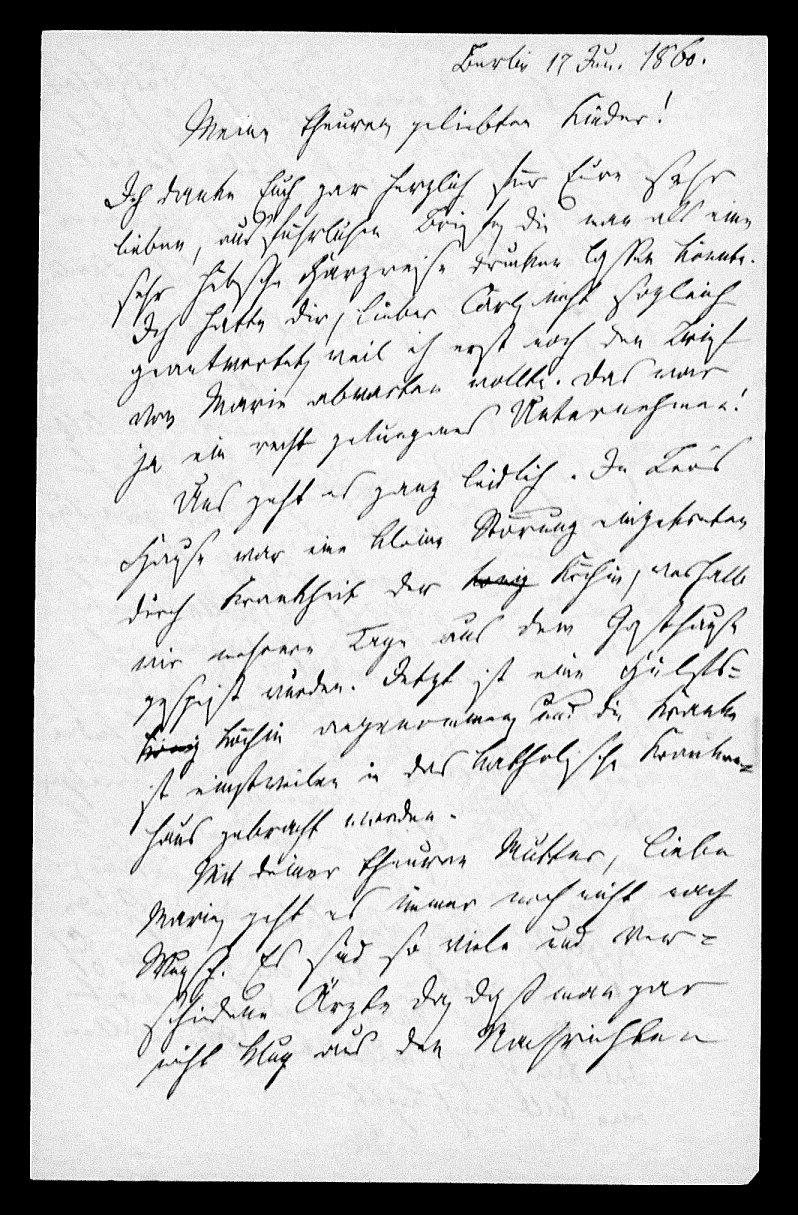 Berlin 17 Jun. 1860.
Meine theuren geliebten Kinder!
Ich danke Euch gar herzlich für Eure sehr
lieben, ausführlichen Briefe, die man als eine
sehr hübsche Harzreise drucken lassen könnte.
Ich hatte Dir, lieber Carl, nicht sogleich
geantwortet, weil ich erst noch den Brief
von Marie abwarten wollte. Das war
ja ein recht gelungenes Unternehmen!
Uns geht es ganz leidlich. In Leo's
Hause war eine kleine Störung eingetreten
durch Krankheit der Köchin, weshalb
wir mehrere Tage aus dem Gasthause
gespeist wurden. Jetzt ist eine Hülfs-
Köchin angenommen, und die Kranke
ist einstweilen in das katholische Kranken-
haus gebracht worden.
Mit deiner theuren Mutter, liebe
Marie, geht es immer noch nicht nach
Wunsch. Es sind so viele und ver-
schiedene Ärzte da, daß man gar
nicht klug aus den Nachrichten